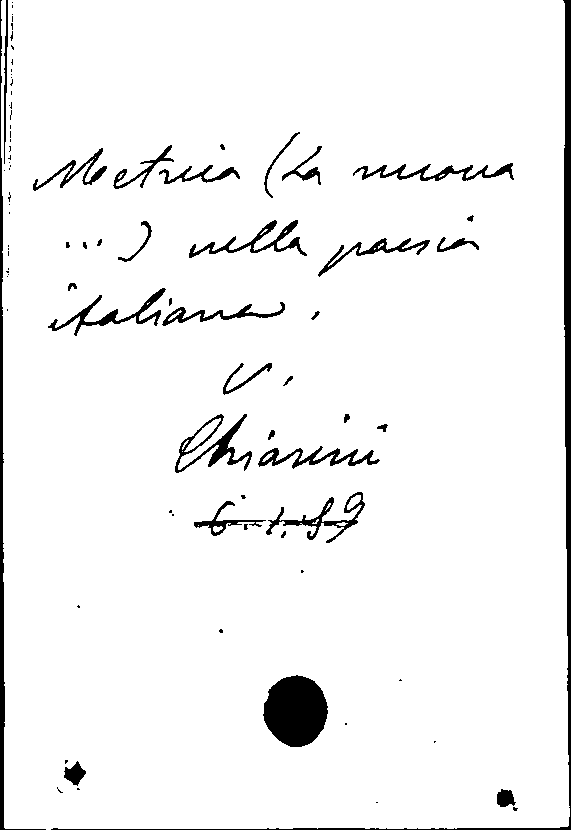 Metrica (La nuova
...) nella poesia
italiana.
V.
Chiarini
6.1.89